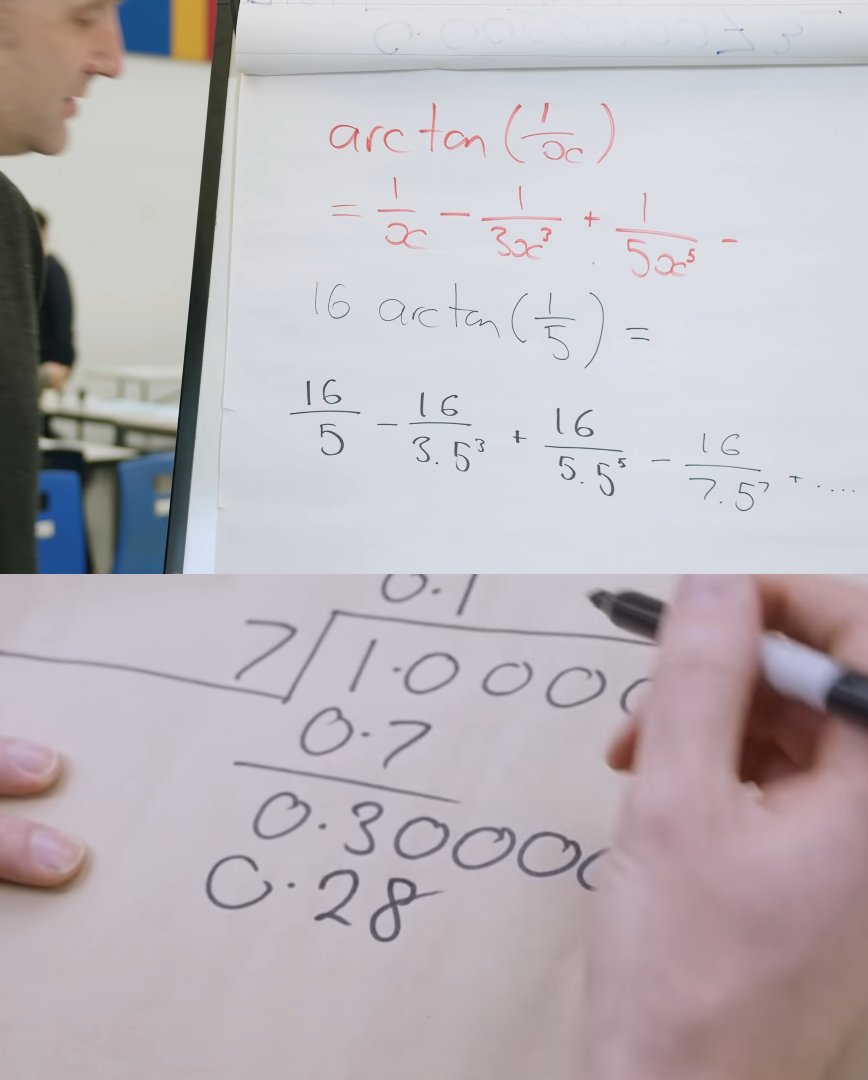 arctan(1/x)
= 1/x - 1/3x³ + 1/5x⁵ -
16 arctan(1/5) =
16/5 - 16/3.5³ + 16/5.5⁵ - 16/7.5⁷ + ....
0.1
7 1.0000
0.7
0.30000
0.28